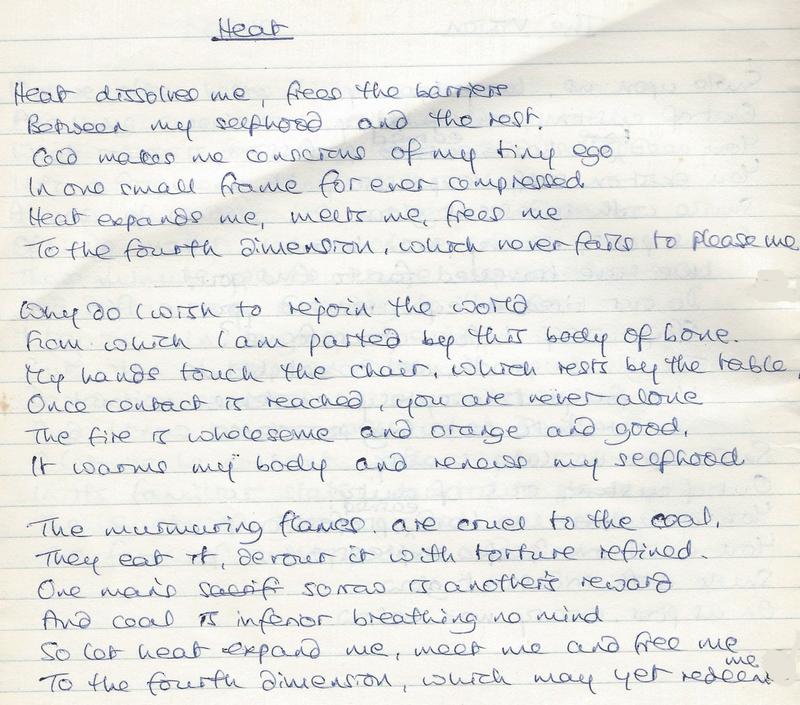 Heat
Heat dissolves me, frees the barriers
Between my selfhood and the rest.
Cold makes me conscious of my tiny ego
In one small frame for ever compressed
Heat expands me, meets me, frees me
To the fourth dimension, which never fails to please me
Why do I wish to rejoin the world
From which I am parted by this body of bone.
My hands touch the chair, which rests by the table,
Once contact is reached, you are never alone
The fire is wholesome and orange and good,
It warms my body and renews my selfhood
The murmuring flames are cruel to the coal,
They eat it, devour it with torture refined.
One man's sorrow is another's reward
And coal is inferior breathing no mind
So let heat expand me, meet me and free me
To the fourth dimension, which may yet redeem me